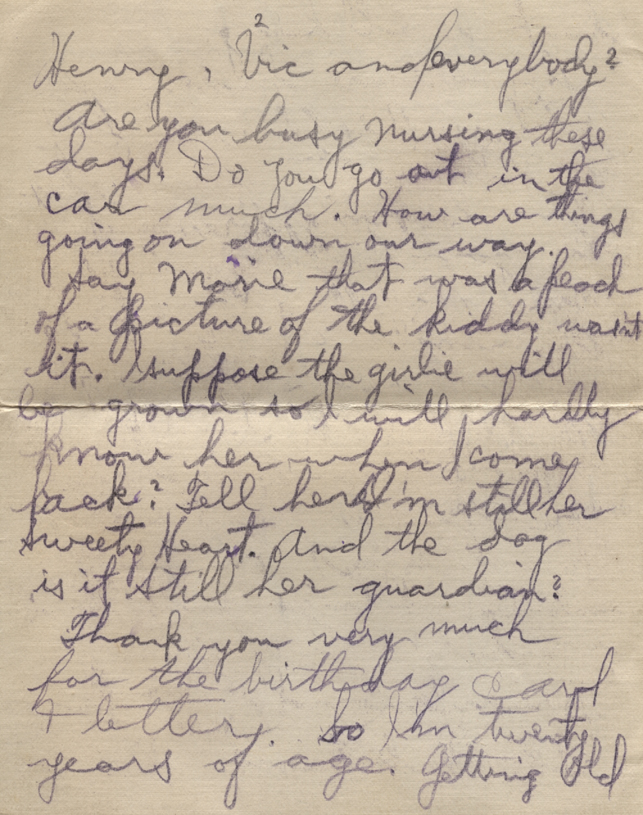 2
Henry, Vic and everybody?
Are you busy nursing these
days. Do you go out in the
car much. How are things
going on down our way.
Say Marie that was a peach
of a picture of the kiddy wasn't
it. I suppose the girlie will
be grown so I will hardly
know her when I come
back? Tell her I'm still her
sweety Heart. And the dog
is it still her guardian?
Thank you very much
for the birthday card
& letter. So I'm twenty
years of age. Getting Old